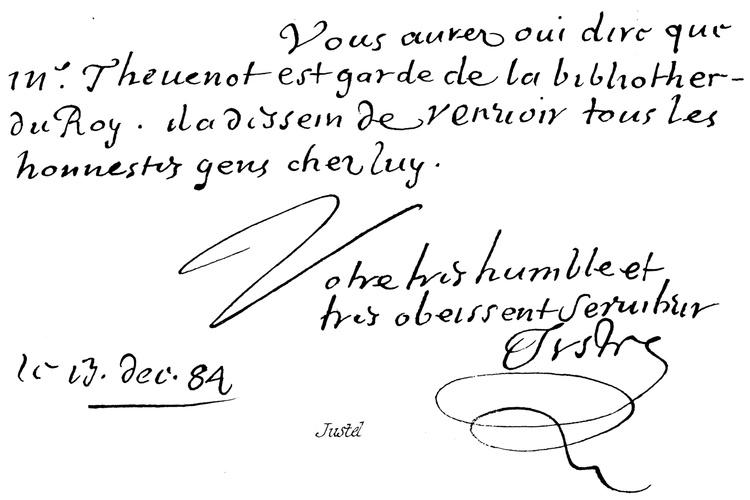 Vous aurez oui dire que
mr. Theuenot est garde de la bibliother-
du Roy. il a dissein de reuuoir tous les
honnestes gens chez luy.
Votre tres humble et
tres obeissent seruiteur
Justel
le 13. dec. 84
Justel